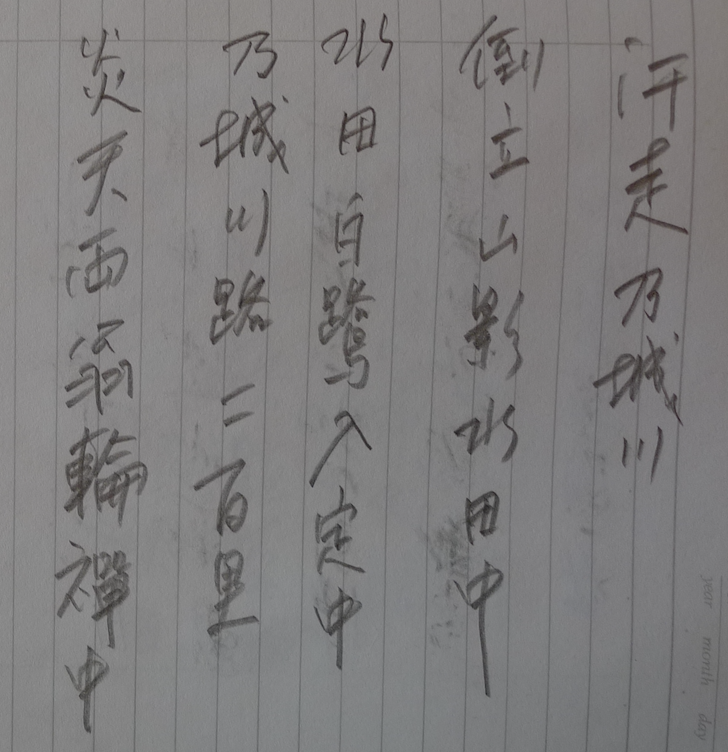 汗走乃城川
倒立山影水田中
水田白鷺入定中
乃城川路二百里
炎天両翁輪禪中
year month day